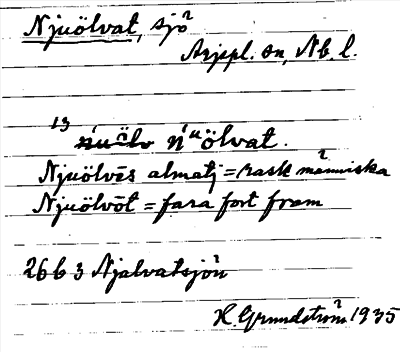 Njuölvat, sjö
Arjepl. sn, Nb. l.
13 n'uölvat.
Njuölvēs almatj = rask människa
Njuölvōt = fara fort fram
26 b 3 Njalvatsjön
H. Grundström 1935